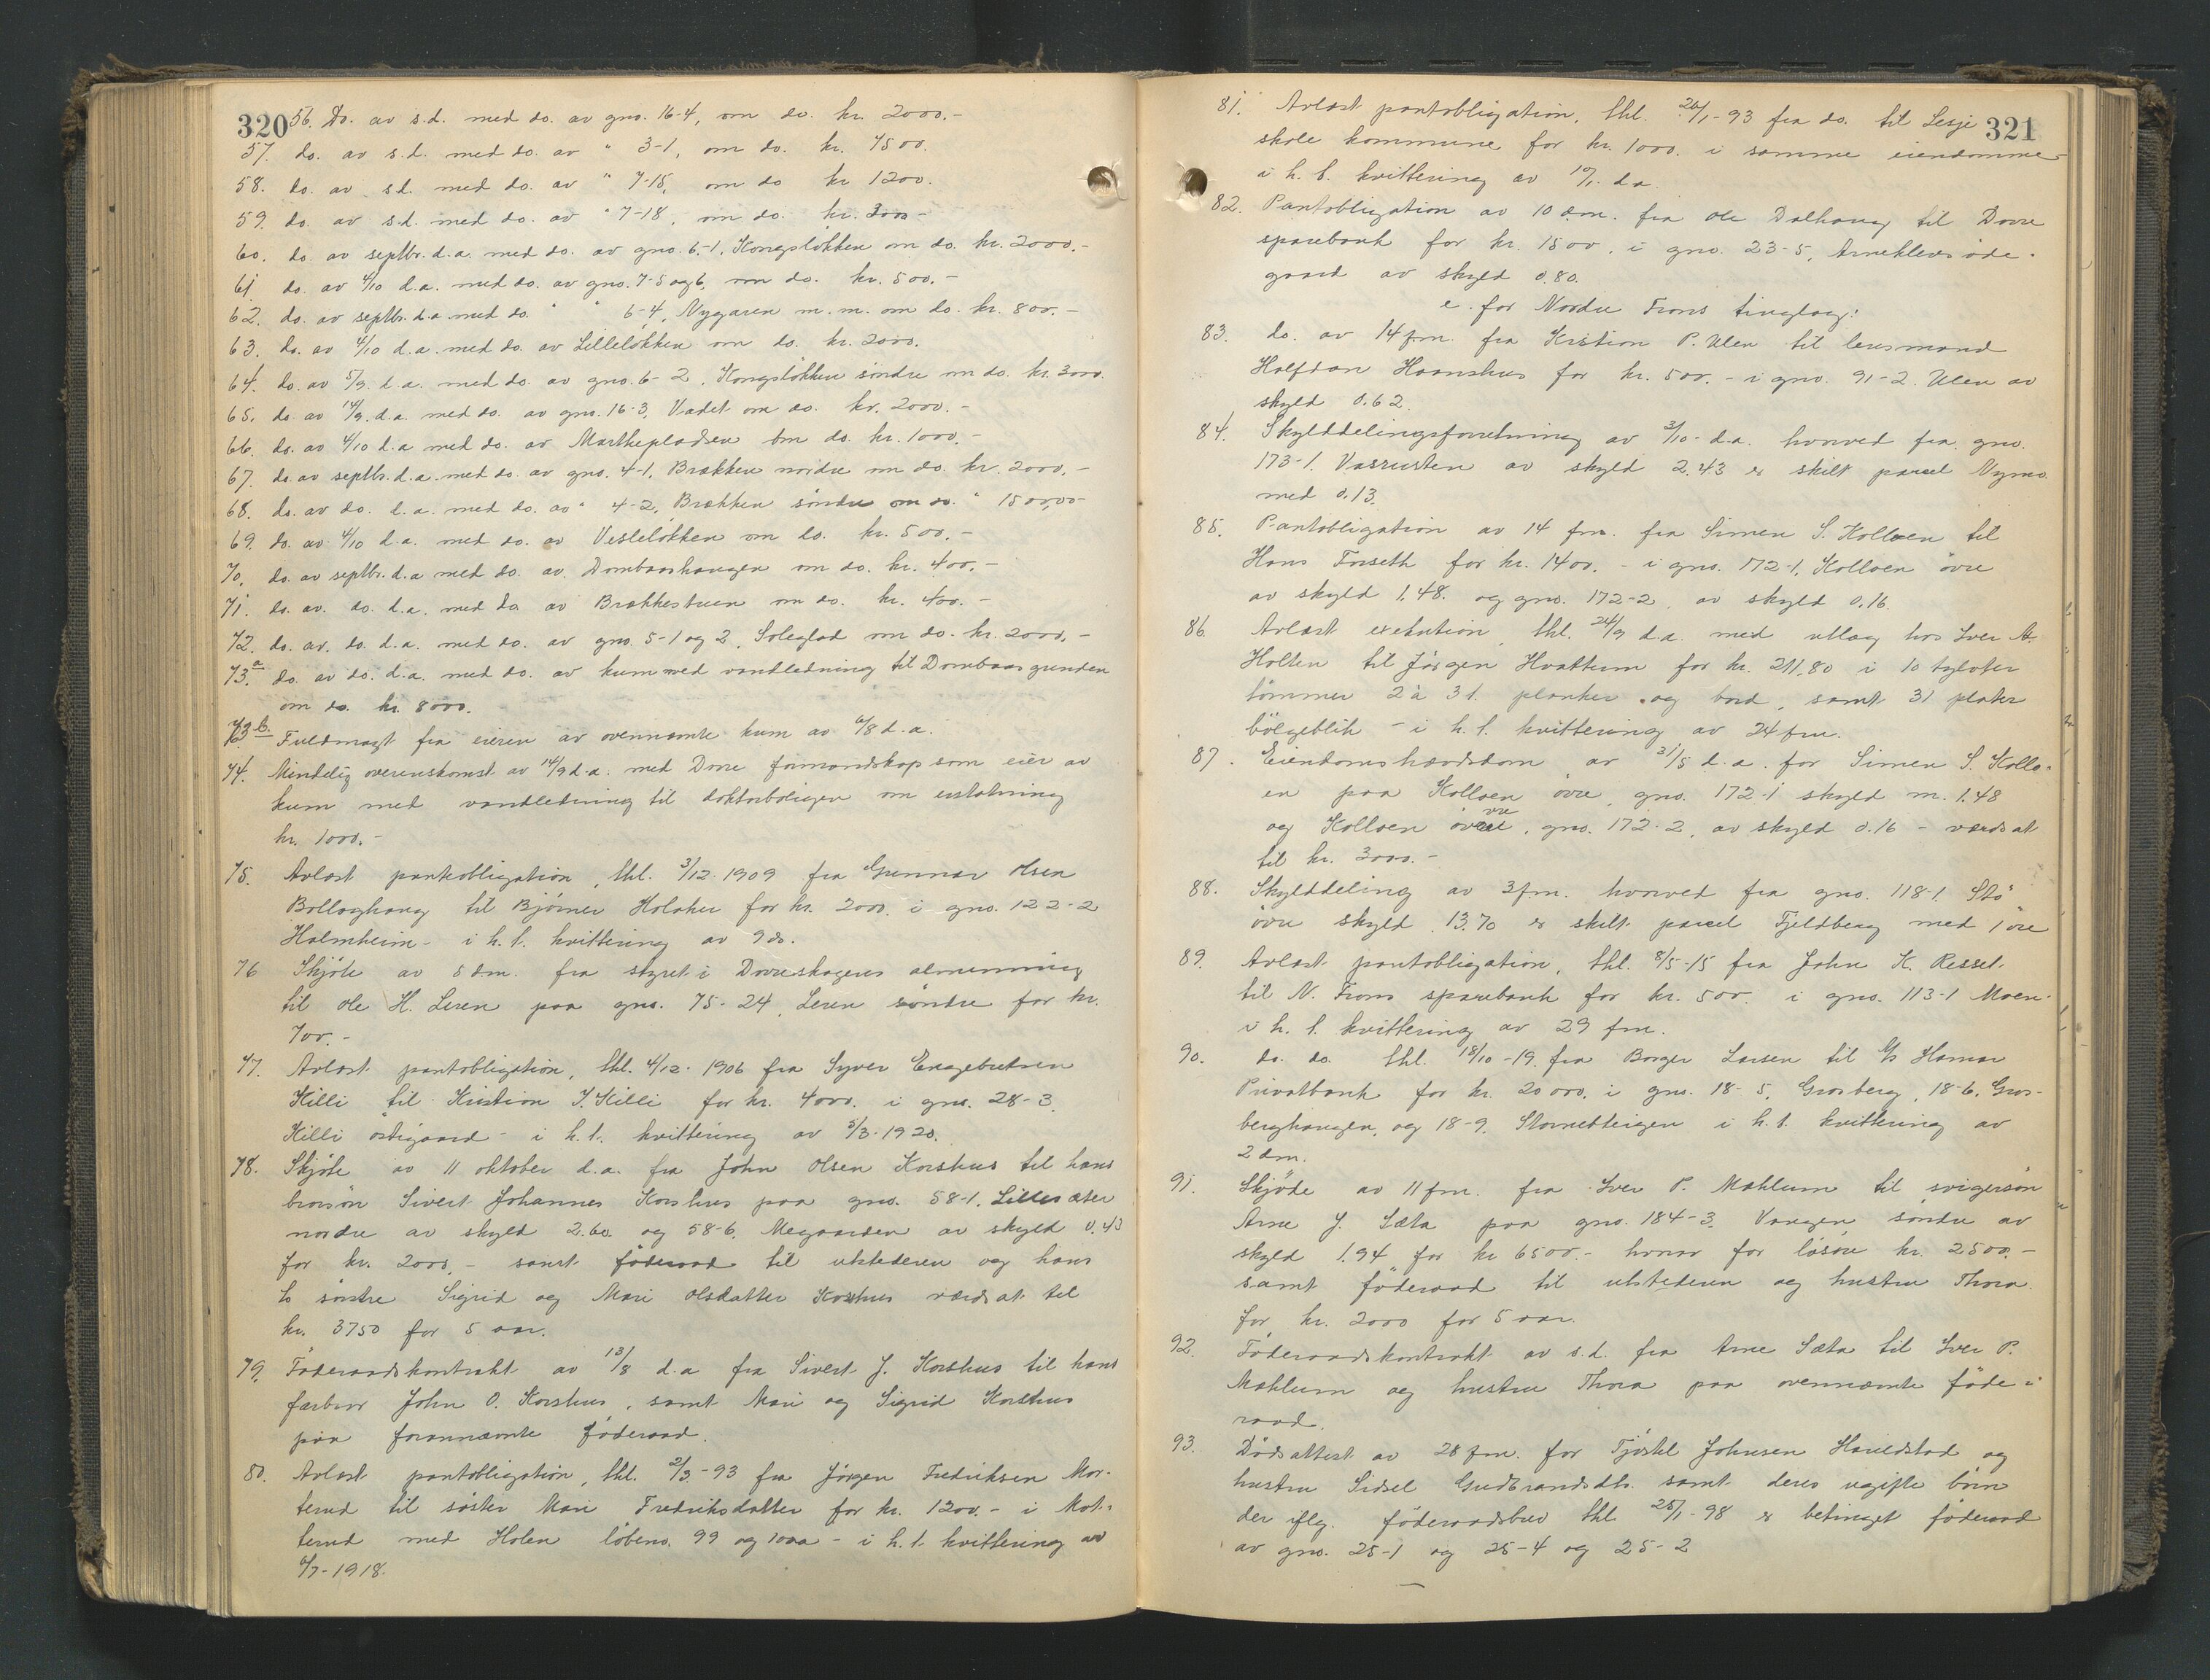 320
56. Do. av s.d. med do. av gno. 16-4, om do. kr. 2000.-
57. do. av s.d. med do. av " 3-1, om do. kr. 4500.
58. do. av s.d. med do. av " 7-15, om do kr 1200.
59. do. av s.d. med do. av " 7-18, om do. kr. 3000-
60. do. av septbr. d.a. med do. av gno. 6-1, Kongsløkken om do. kr. 2000.-
61. do. av 4/10 d.a. med do. av gno. 7-5 og 6, om do. kr. 500.-
62. do. av septbr. d.a. med do. " " 6-4, Nygaren m.m. om do. kr. 800.-
63. do. av 4/10 d.a. med do. av Lilleløkken om do. kr. 2000.
64. do. av 5/9. d.a. med do. av gno. 6-2, Kongsløkken søndre om do. kr. 3000.
65. do. av 14/9. d.a. med do. av gno. 16-3, Vadet om do. kr. 2000.-
66. do. av 4/10 d.a med do. av Marthepladsen om do. kr. 1000.-
67. do. av septbr. d.a. med do. av gno. 4-1, Brækken nordre om do. kr. 2000.-
68. do. av do. d.a. med do. av " 4-2, Brækken søndre om do. " 1500,00
69. do. av 4/10 d.a. med do. av Vesleløkken om do. kr. 500.-
70. do. av septbr. d.a med do. av Dombaashaugen om do. kr. 400.-
71. do. av. do. d.a. med do av Brækkestuen om do. kr. 400.-
72. do. av. do. d.a. med do. av gno. 5-1 og 2, Soleglad om do. kr. 2000.-
73.a do. av do. d.a. med do. av kum med vandledning til Dombaasgunden
om do. kr. 8000.
73 b. Fuldmagt fra eieren av ovennævnte kum av 6/8 d.a.
74. Mindelig overenskomst av 14/9 d.a. med Dovre formandskap som eier av
kum med vandledning til doktorboligen om erstatning
kr. 1000.-
75. Avlæst pantobligation, thl. 3/12 1909 fra Gunnar Olsen
Bollaghaug til Bjørner Holaker for kr. 2000. i gno. 122-2
Holmheim- i h.t. kvittering av 9 ds.
76 Skjøte av 5 dm. fra styret i Dovreskogens almenning
til Ole H. Leren paa gno. 75-24, Leren søndre for kr.
700.-
77. Avlæst pantobligation, thl. 4/12. 1906 fra Syver Engebretsen
Killi til Kristian J. Killi for kr. 4000. i gno. 28-3,
Killi østigaard - i h.t. kvittering av 5/3-1920.
78. Skjøte av 11 oktober d.a. fra John Olsen Korshus til hans
brorsøn Sivert Johannes Korshus paa gno. 58-1, Lillesæter
nordre av skyld 2.60 og 58-6, Megaarden av skyld 0.43
for kr. 2000.- samt føderaad til utstederen og hans
to søstre Sigrid og Mari Olsdatter Korshus værdsat til
kr. 3750 for 5 aar.
79. Føderaadskontrakt av 13/8 d.a fra Sivert J. Korshus til hans
farbror John O. Korshus, samt Mari og Sigrid Korshus
paa forannævnte føderaad.
80. Avlæst pantobligation, thl. 2/3-93 fra Jørgen Fredriksen Mor-
terud til søster Mari Fredriksdatter for kr. 1200.- i Mot-
terud med Holen løbeno. 99 og 100a - i h.t. kvittering av
6/7-1918.
321
81. Avlæst pantobligation, thl. 26/1-93 fra do. til Lesje
skole kommune for kr. 1000. i samme eiendomme-
i h.t. kvittering av 10/1. d.a.
82. Pantobligation av 10 dm. fra Ole Dalhaug til Dovre
sparebank for kr. 1500. i gno. 23-5, Arneklevsøde-
gaard av skyld 0.80.
e. for Nordre Frons tinglag:
83. do. av 14 fm. fra Kristian P. Ulen til lensmand
Halfdan Haanshus for kr. 500.- i gno. 91-2. Ulen av
skyld 0.62.
84. Skylddelingsforretning av 3/10- d.a. hvorved fra gno.
173-1. Vasrusten av skyld 2.43 er skilt parcel Nymo
med 0.13.
85. Pantobligation av 14 fm. fra Simen S. Kolloen til
Hans Forseth for kr. 1400.- i gno. 172-1, Kolloen øvre
av skyld 1.48. og gno. 172-2, av skyld 0.16.
86. Avlæst exekution, thl. 24/9 d.a. med utlæg hos Iver A.
Holten til Jørgen Hvattum for kr. 211.80 i 10 tylvter
tømmer 2 à 3 t. planker og bord, samt 31 plater
bølgeblik - i h.t. kvittering av 24 fm.
87. Eiendomshævdsdom av 31/5 d.a. for Simen S. Kollo-
en paa Kolloen øvre, gno. 172-1 skyld m. 1.48
og Kolloen øvre, gno. 172-2, av skyld 0.16 - værdsat
til kr. 3000.-
88. Skylddeling av 3 fm. hvorved fra gno. 118-1 Stø
øvre skyld 13.70 er skilt parcel Fjeldberg med 1 øre
89. Avlæst pantobligation, thl. 8/5-15 fra John K. Resset
til N. Frons sparebank for kr. 500. i gno. 113-1 Moen-
i h.t. kvittering av 29 fm.
90. do. do. thl. 18/10-19. fra Borger Larsen til A/s Hamar
Privatbank for kr. 20 000. i gno. 18-5, Grosberg, 18-6, Gros-
berghaugen, og 18-9, Stornetteigen i h.t. kvittering av
2 dm.
91. Skjøde av 11 fm. fra Iver P. Mæhlum til svigersøn
Arne J. Sæta paa gno. 184-3. Vangen søndre av
skyld 1.94 for kr 6500.- hvorav for løsøre kr. 2500.-
samt føderaad til utstederen og hustru Thora
for kr. 2000 for 5 aar.
92. Føderaadskontrakt av s.d. fra Arne Sæta til Iver P.
Mæhlum og hustru Thora paa ovennævnte føde-
raad.
93. Dødsattest av 28 fm. for Tjøstel Johnsen Haverdstad og
hustru Sidsel Gudbrandsdtr. samt deres ugifte børn
der iflg. føderaadsbrev thl. 25/1-98 er betinget føderaad
av gno. 25-1 og 25-4 og 25-2